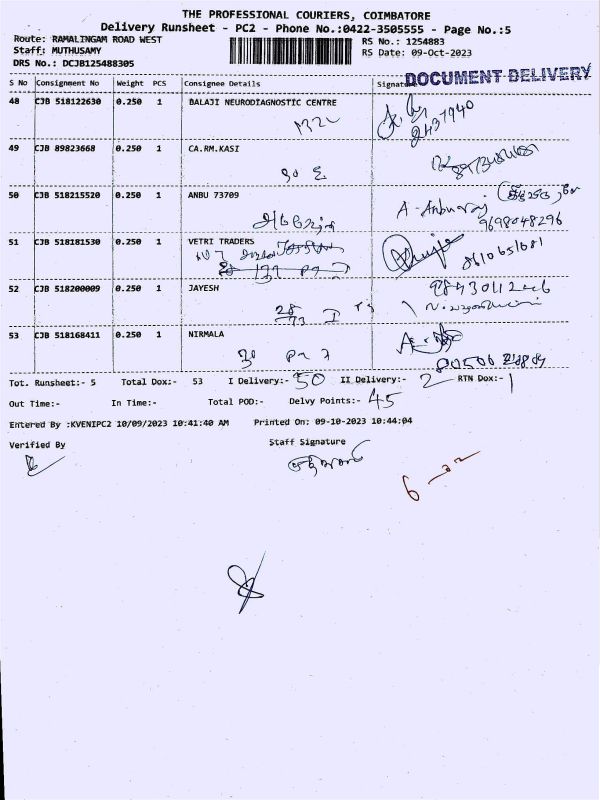 THE PROFESSIONAL COURIERS, COIMBATORE
Delivery Runsheet - PC2 - Phone No.:0422-3505555 - Page No.:5
Route: RAMALINGAM ROAD WEST
Staff: MUTHUSAMY
DRS No.: DCJB125488305
RS No.: 1254883
RS Date: 09-Oct-2023
S No Consignment No Weight PCS Consignee Details Signature
DOCUMENT DELIVERY
48 CJB 518122630 0.250 1 BALAJI NEURODIAGNOSTIC CENTRE
49 CJB 89823668 0.250 1 CA.RM.KASI
50 CJB 518215520 0.250 1 ANBU 73709
A - Anburaj
9698048296
51 CJB 518181530 0.250 1 VETRI TRADERS
8610651681
52 CJB 518200009 0.250 1 JAYESH
53 CJB 518168411 0.250 1 NIRMALA
Tot. Runsheet:- 5 Total Dox:- 53 I Delivery:- 50 II Delivery:- 2 RTN Dox:- 1
Out Time:- In Time:- Total POD:- Delvy Points:- 45
Entered By :KVENIPC2 10/09/2023 10:41:40 AM Printed On: 09-10-2023 10:44:04
Verified By Staff Signature